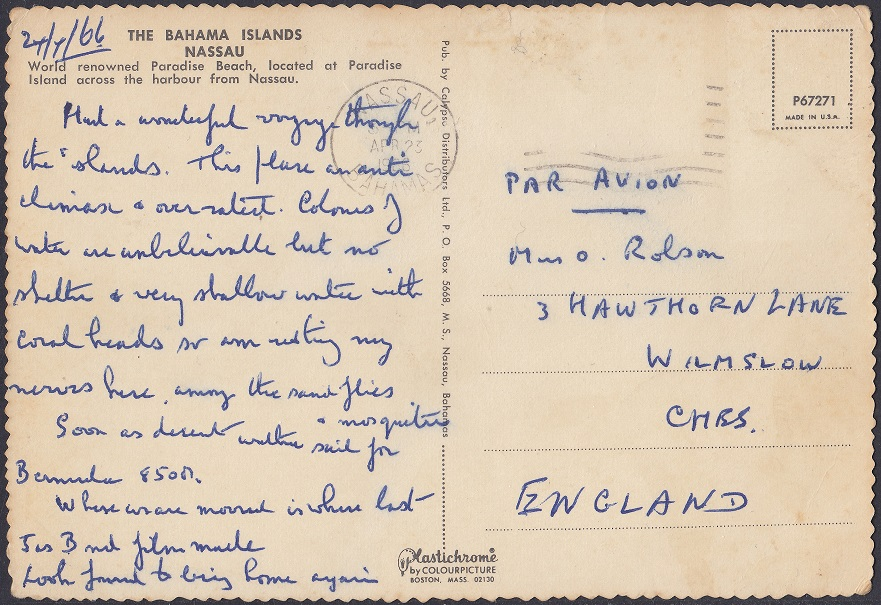 24/4/66
THE BAHAMA ISLANDS
NASSAU
World renowned Paradise Beach, located at Paradise
Island across the harbour from Nassau.
Had a wonderful voyage through
the islands. This place an anti
climax & over-rated. Colours of
water are unbelievable but no
shelter & very shallow water with
coral heads so am resting my
nerves here, among the sand flies
& mosquitos
Soon as decent weather sail for
Bermuda 850M.
Where we are moored is where last
Jas B nd film made
Look forward to being home again
NASSAU
APR 23
BAHAMAS
Pub. by Calypso Distributors Ltd., P. O. Box 5668, M. S., Nassau, Bahamas
Plastichrome
by COLOURPICTURE
BOSTON, MASS. 02130
P67271
MADE IN U.S.A.
PAR AVION
O. Robson
3 HAWTHORN LANE
WILMSLOW
CHES.
ENGLAND